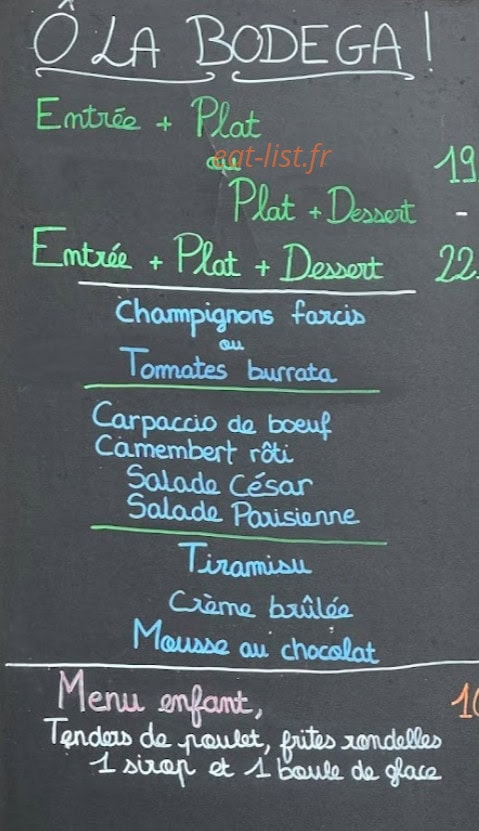 Ô LA BODEGA !
Entrée + Plat
ou
eat-list.fr
19
Plat + Dessert -
Entrée + Plat + Dessert 22.
Champignons farcis
ou
Tomates burrata
Carpaccio de boeuf
Camembert rôti
Salade César
Salade Parisienne
Tiramisu
Crème brûlée
Mousse au chocolat
Menu enfant, 10
Tenders de poulet, frites rondelles
1 sirop et 1 boule de glace